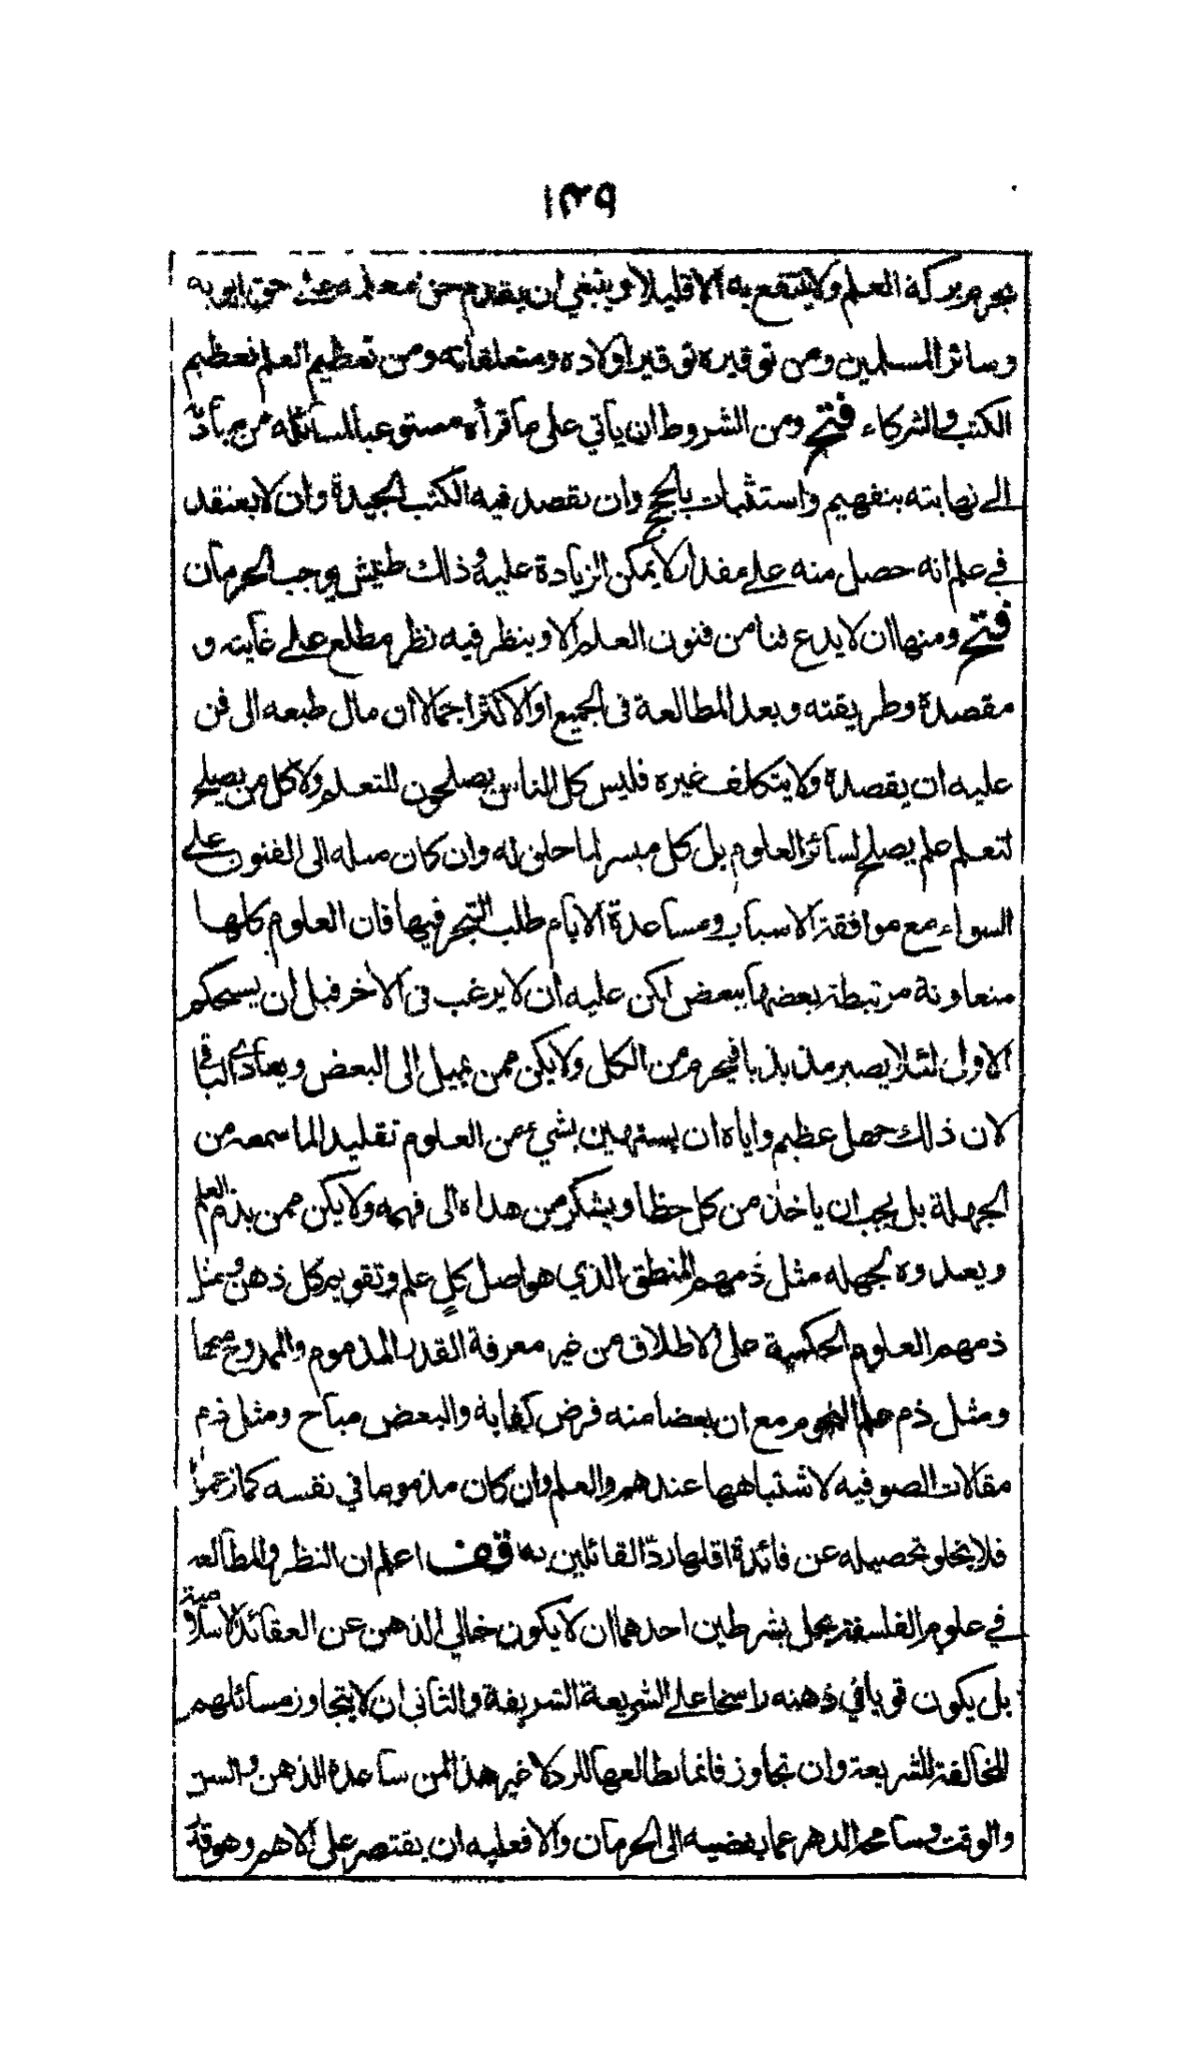 ١٣٩
يحرم بركة العلم ولا ينتفع به الا قليلا وينبغي ان يقدم حق معلمه على حق ابويه
وسائر المسلمين ومن توقيره توقير اولاده ومتعلقاته ومن تعظيم العلم تعظيم
الكتب والشركاء فتح ومن الشروط ان ياتي على ما قرأه مستوعبا لمسائله من مبادئه
الى نهايته بتفهيم واستثبات بالحجج وان يقصد فيه الكتب الجيدة وان لا يعتقد
في علم انه حصل منه على مقدار لا يمكن الزيادة عليه وذلك طيش يوجب الحرمان
فتح ومنها ان لا يدع فنا من فنون العلم الا وينظر فيه نظر مطلع على غايته و
مقصده وطريقته وبعد المطالعة فى الجميع او الاكثر اجمالا ان مال طبعه الى فن
عليه ان يقصده ولا يتكلف غيره فليس كل الناس يصلحون للتعلم ولا كل من يصلح
لتعلم علم يصلح لسائر العلوم بل كل ميسر لما خلق له وان كان ميله الى الفنون على
السواء مع موافقة الاسباب ومساعدة الايام طلب التبحر فيها فان العلوم كلها
متعاونة مرتبطة بعضها ببعض لكن عليه ان لا يرغب فى الآخر قبل ان يستحكم
الاول لئلا يصير مذبذبا فيحرم من الكل ولا يكن ممن يميل الى البعض ويعادي الباقي
لان ذلك جهل عظيم واياه ان يستهين بشيء من العلوم تقليدا لما سمعه من
الجهلة بل يجب ان ياخذ من كل حظا ويشكر من هداه الى فهمه ولا يكن ممن يذم العلم
ويعدوه لجهله مثل ذمهم المنطق الذي هو اصل كل علم وتقويم كل ذهن ومثل
ذمهم العلوم الحكمية على الاطلاق من غير معرفة القدر المذموم والممدوح منها
ومثل ذم علم النجوم مع ان بعضا منه فرض كفاية والبعض مباح ومثل ذم
مقالات الصوفيه لاشتباهها عندهم والعلم وان كان مذموما في نفسه كما زعموا
فلا يخلو تحصيله عن فائدة اقلها رد القائلين به قف اعلم ان النظر والمطالعه
في علوم الفلسفة يحل بشرطين احدهما ان لا يكون خالي الذهن عن العقائد الاسلامية
بل يكون قويا في ذهنه راسخا على الشريعة الشريفة والثاني ان لا يتجاوز مسائلهم
المخالفة للشريعة وان تجاوز فانما يطالعها للرد لا غير هذا لمن ساعده الذهن والسن
والوقت وسامحه الدهر عما يفضيه الى الحرمان والا فعليه ان يقتصر على الاهم وهو قدر